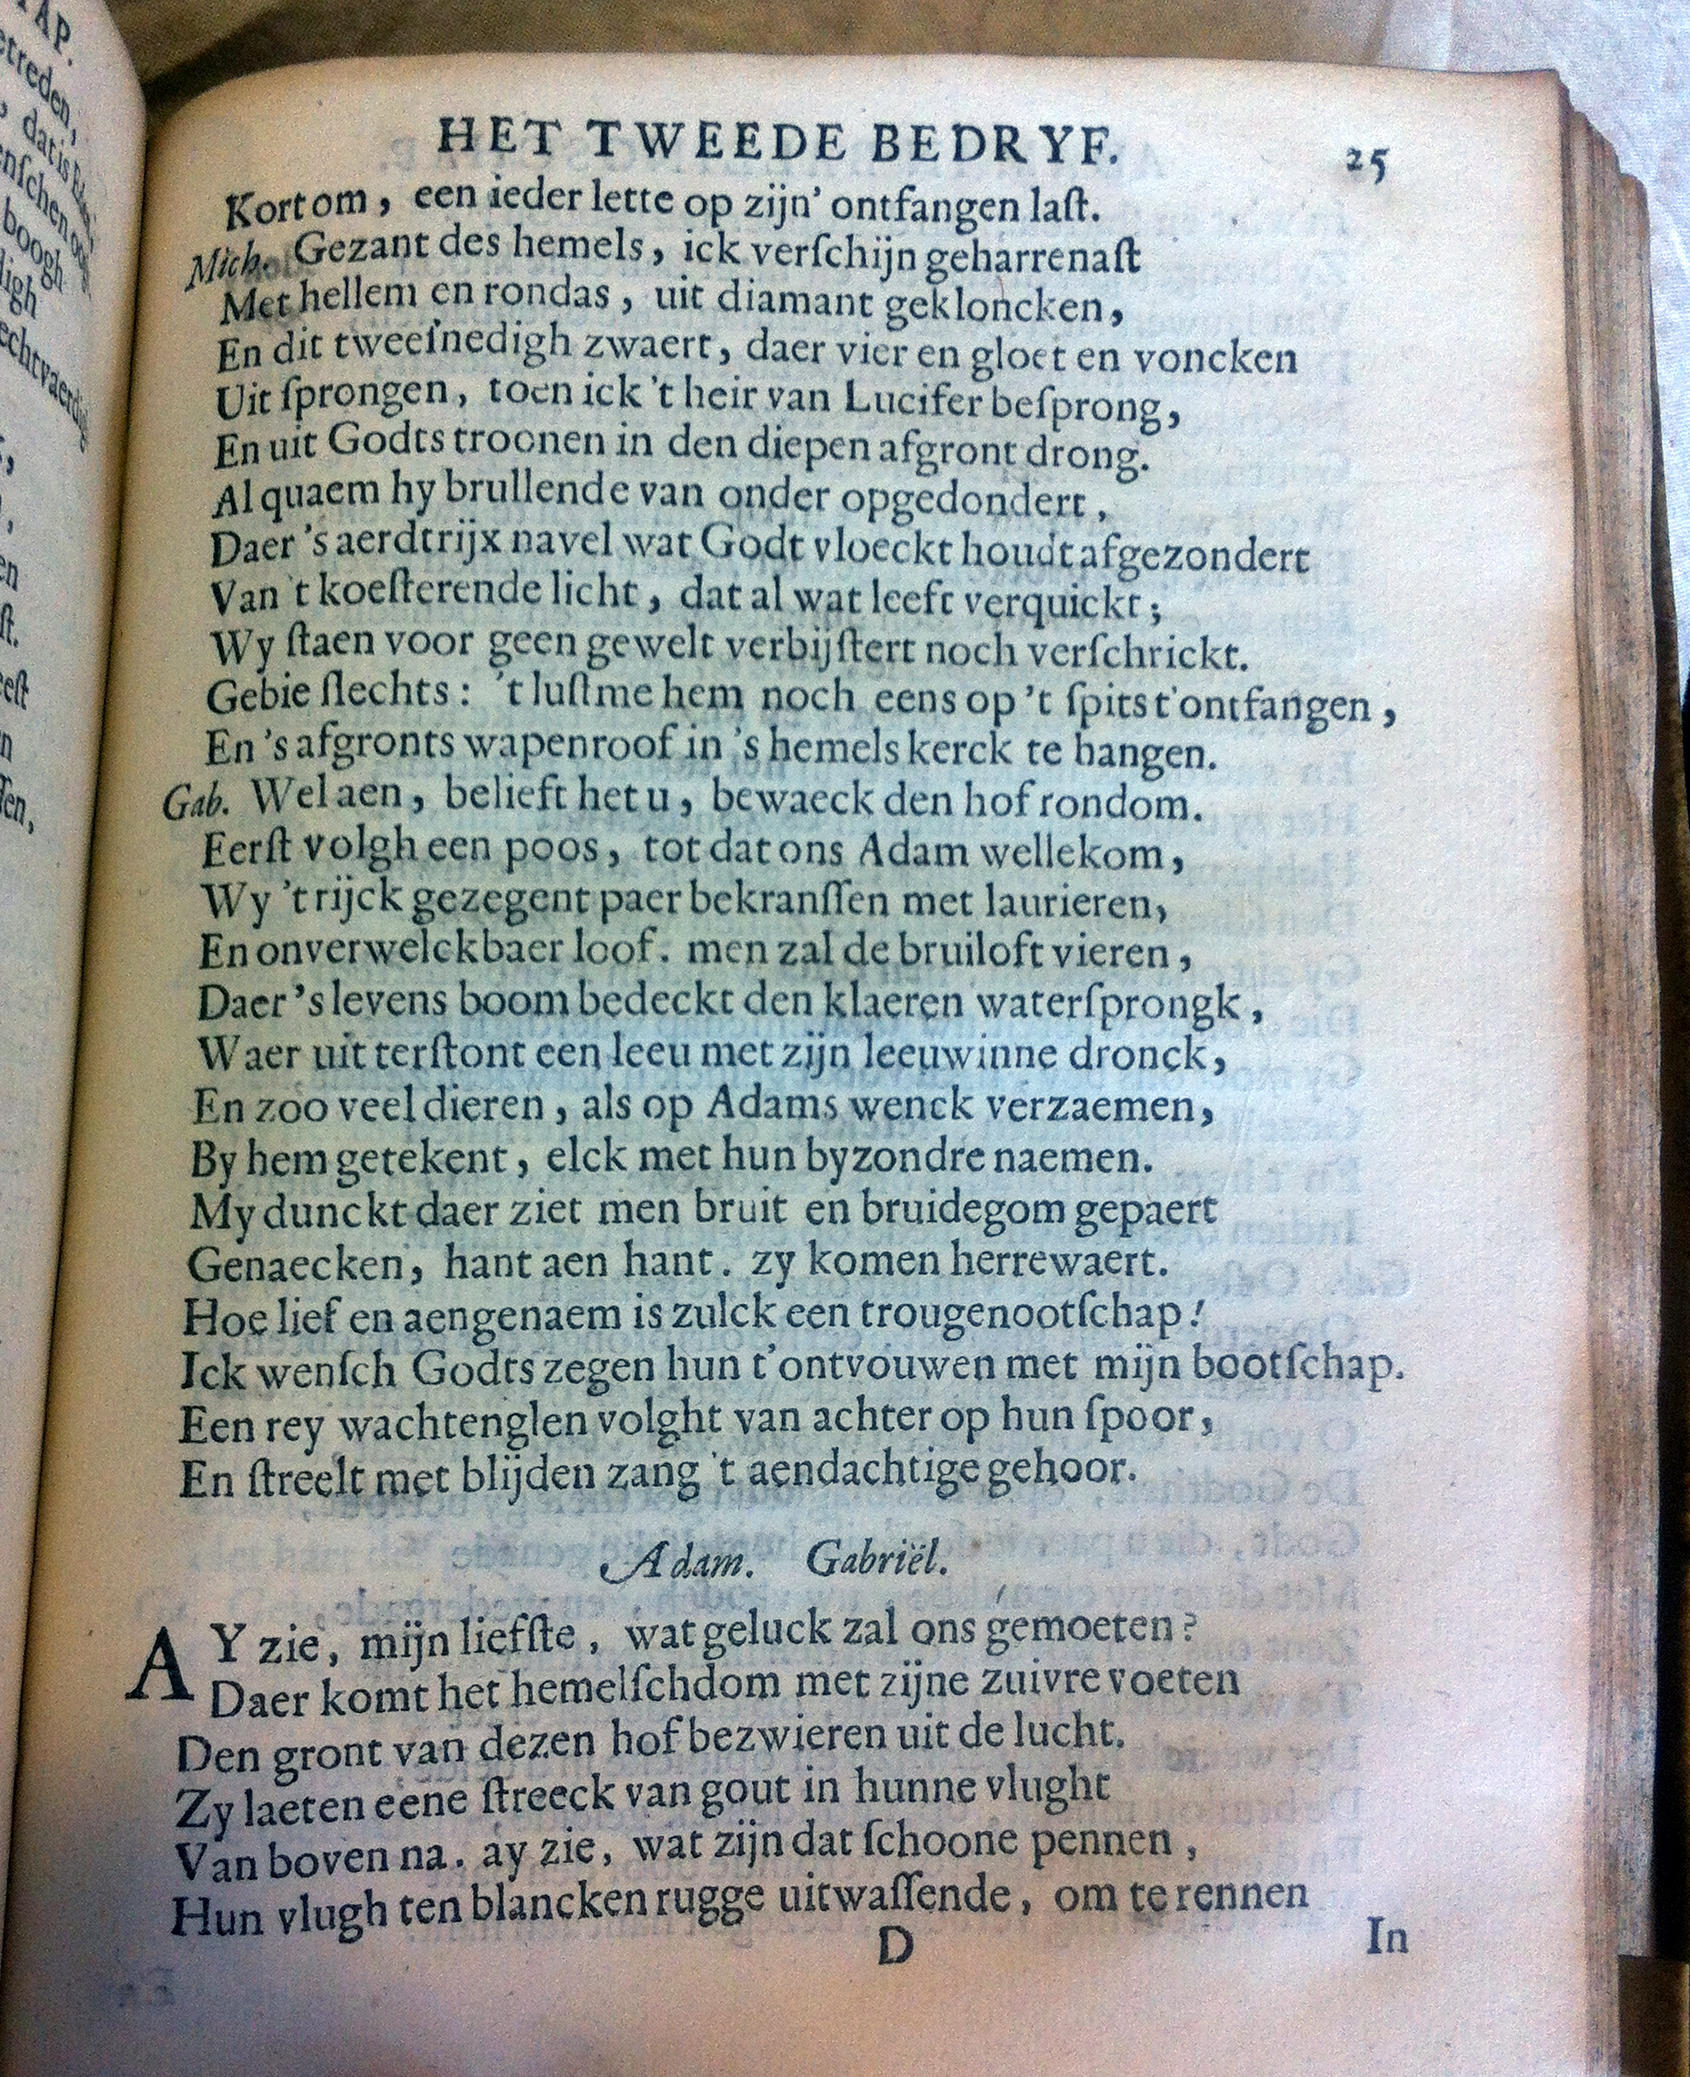 HET TWEEDE BEDRYF. 25
Kortom, een ieder lette op zijn' ontfangen laſt.
Mich. Gezant des hemels, ick verſchijn geharrenaſt
Met hellem en rondas, uit diamant gekloncken,
En dit tweeſnedigh zwaert, daer vier en gloet en voncken
Uit ſprongen, toen ick 't heir van Lucifer beſprong,
En uit Godts troonen in den diepen afgront drong.
Al quaem hy brullende van onder opgedondert,
Daer 's aerdtrijx navel wat Godt vloeckt houdt afgezondert
Van 't koeſterende licht, dat al wat leeft verquickt;
Wy ſtaen voor geen gewelt verbijſtert noch verſchrickt.
Gebie ſlechts: 't luſt me hem noch eens op 't ſpits t'ontfangen,
En 's afgronts wapenroof in 's hemels kerck te hangen.
Gab. Wel aen, belieft het u, bewaeck den hof rondom.
Eerſt volgh een poos, tot dat ons Adam wellekom,
Wy 't rijck gezegent paer bekranſſen met laurieren,
En onverwelckbaer loof. men zal de bruiloft vieren,
Daer 's levens boom bedeckt den klaeren waterſprongk,
Waer uit terſtont een leeu met zijn leeuwinne dronck,
En zoo veel dieren, als op Adams wenck verzaemen,
By hem getekent, elck met hun byzondre naemen.
My dunckt daer ziet men bruit en bruidegom gepaert
Genaecken, hant aen hant. zy komen herrewaert.
Hoe lief en aengenaem is zulck een trougenootſchap!
Ick wenſch Godts zegen hun t'ontvouwen met mijn bootſchap.
Een rey wachtenglen volght van achter op hun ſpoor,
En ſtreelt met blijden zang 't aendachtige gehoor.
Adam. Gabriël.
AY zie, mijn liefſte, wat geluck zal ons gemoeten?
Daer komt het hemelſchdom met zijne zuivre voeten
Den gront van dezen hof bezwieren uit de lucht.
Zy laeten eene ſtreeck van gout in hunne vlught
Van boven na. ay zie, wat zijn dat ſchoone pennen,
Hun vlugh ten blancken rugge uitwaſſende, om te rennen
D In